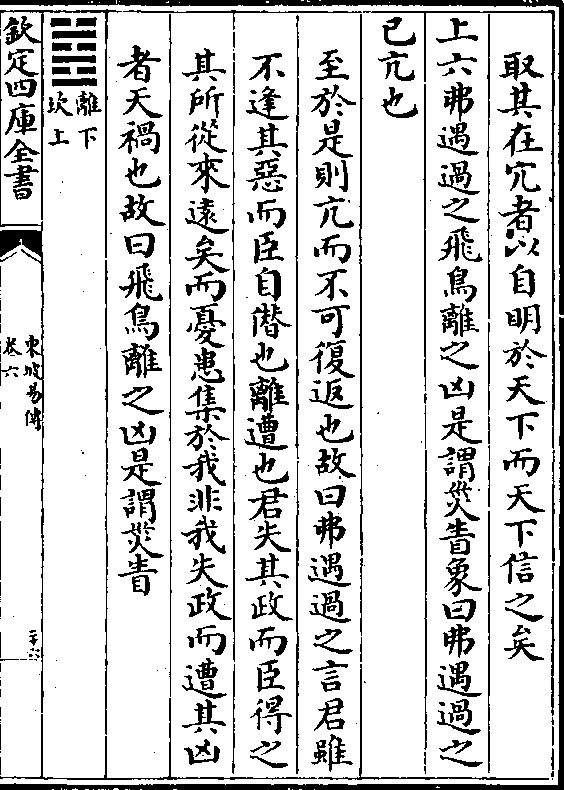 取其在穴者以自明於天下而天下信之矣
上六弗遇過之飛鳥離之凶是謂災眚象曰弗遇過之
已亢也
至於是則亢而不可復返也故曰弗遇過之言君雖
不逢其惡而臣自僭也離遭也君失其政而臣得之
其所從來遠矣而憂患集於我非我失政而遭其凶
者天禍也故曰飛鳥離之凶是謂災眚
離下
坎上
欽定四庫全書
東坡易傳
卷六
二十六